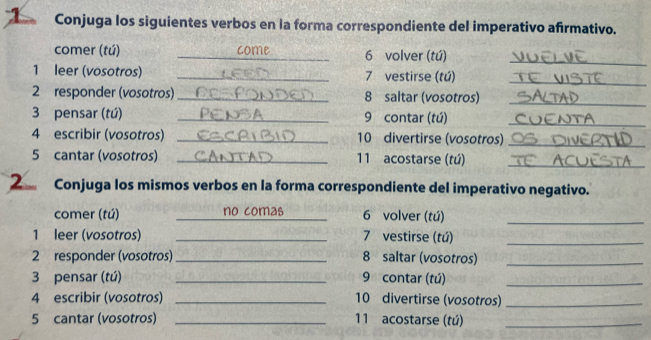 1 Conjuga los siguientes verbos en la forma correspondiente del imperativo afirmativo.
comer (tú) come
1 leer (vosotros) LEED
2 responder (vosotros) RESPONDED
3 pensar (tú) PENSA
4 escribir (vosotros) ESCRIBID
5 cantar (vosotros) CANTAD
6 volver (tú) VUELVE
7 vestirse (tú) TE VISTE
8 saltar (vosotros) SALTAD
9 contar (tú) CUENTA
10 divertirse (vosotros) OS DIVERTID
11 acostarse (tú) TE ACUESTA
2 Conjuga los mismos verbos en la forma correspondiente del imperativo negativo.
comer (tú) no comas
1 leer (vosotros)
2 responder (vosotros)
3 pensar (tú)
4 escribir (vosotros)
5 cantar (vosotros)
6 volver (tú)
7 vestirse (tú)
8 saltar (vosotros)
9 contar (tú)
10 divertirse (vosotros)
11 acostarse (tú)